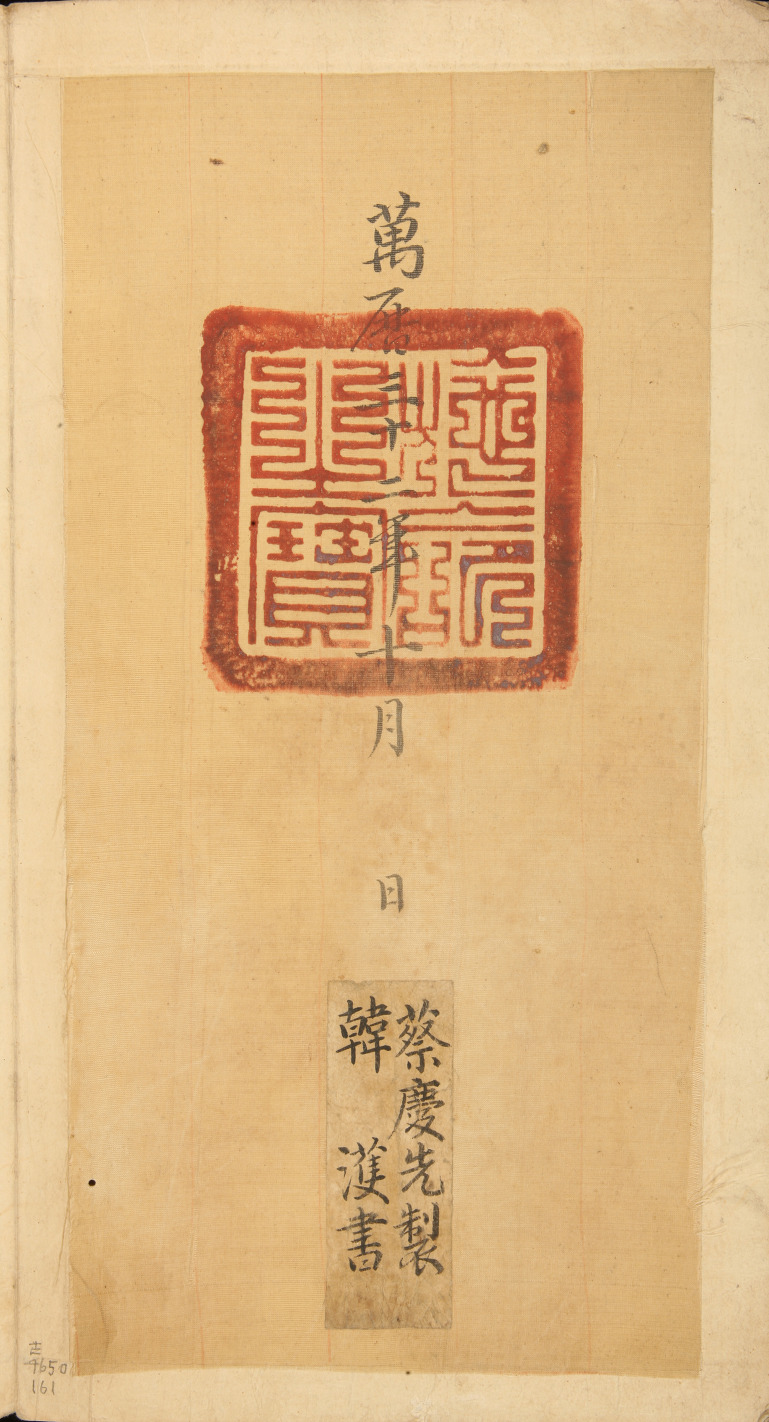 萬曆三十二年十月　日
蔡慶先製
韓　濩書
古
4650
161